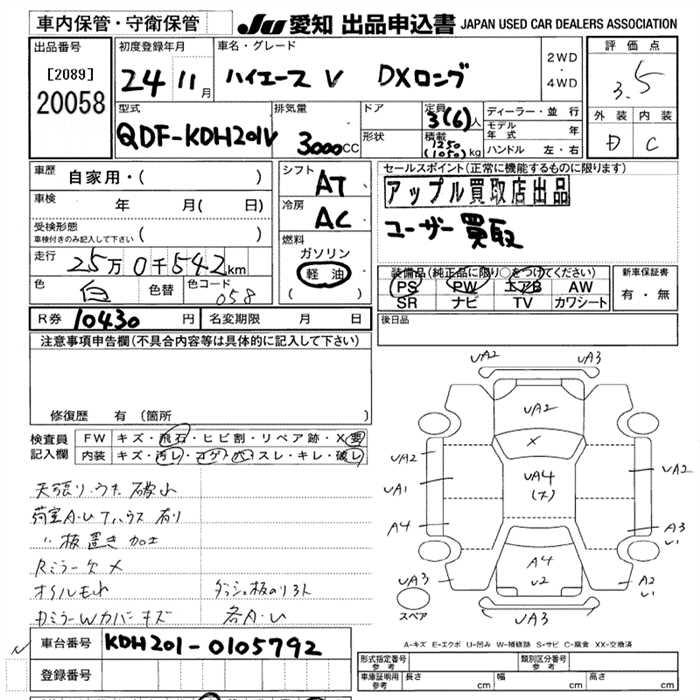 車内保管・守衛保管 JU 愛知 出品申込書 JAPAN USED CAR DEALERS ASSOCIATION
出品番号 初度登録年月 車名・グレード 2WD・4WD 評価点
[2089] 24 11月 ハイエースV DXロング 3.5
20058 型式 排気量 ドア 定員 3(6)人 ディーラー・並行 外装 内装
QDF-KDH201V 3000CC 形状 積載 1250(1050)kg モデル年式 年 D C
ハンドル 左・右
車歴 自家用・( ) シフト AT セールスポイント(正常に機能するものに限ります)
車検 年 月( 日) 冷房 AC アップル買取店出品
受検形態 車検付きのみ記入して下さい ( ) 燃料 ユーザー買取
走行 25万0千542km ガソリン 軽油 ( ) 装備品(純正品に限り○をつけてください) 新車保証書
色 白 色替 色コード 058 PS PW エアB AW 有・無
SR ナビ TV カワシート
R券 10430円 名変期限 月 日 後日品
注意事項申告欄(不具合内容等は具体的に記入して下さい)
修復歴 有 (箇所
検査員記入欄 FW キズ・飛石・ヒビ割・リペア跡・X要
内装 キズ・汚レ・コゲ・穴・スレ・キレ・破レ
天張り・うち 破れ
荷室A・U 有り
〃板置き 加工
Rミラー欠メ
オイルもれ
WカバーキズA
各A・U
UA2 UA3
UA2
X
UA2 UA2
UA1 UA4
A4 A3
A4 U1
U2
UA3 A2
U1
スペア UA3
A-キズ E-エクボ U-凹み W-補修跡 S-サビ C-腐食 XX-交換済
車台番号 KDH201-0105792
登録番号
形式指定番号 参考 類別区分番号 参考
車庫証明用 参考 長さ cm 幅 cm 高さ cm